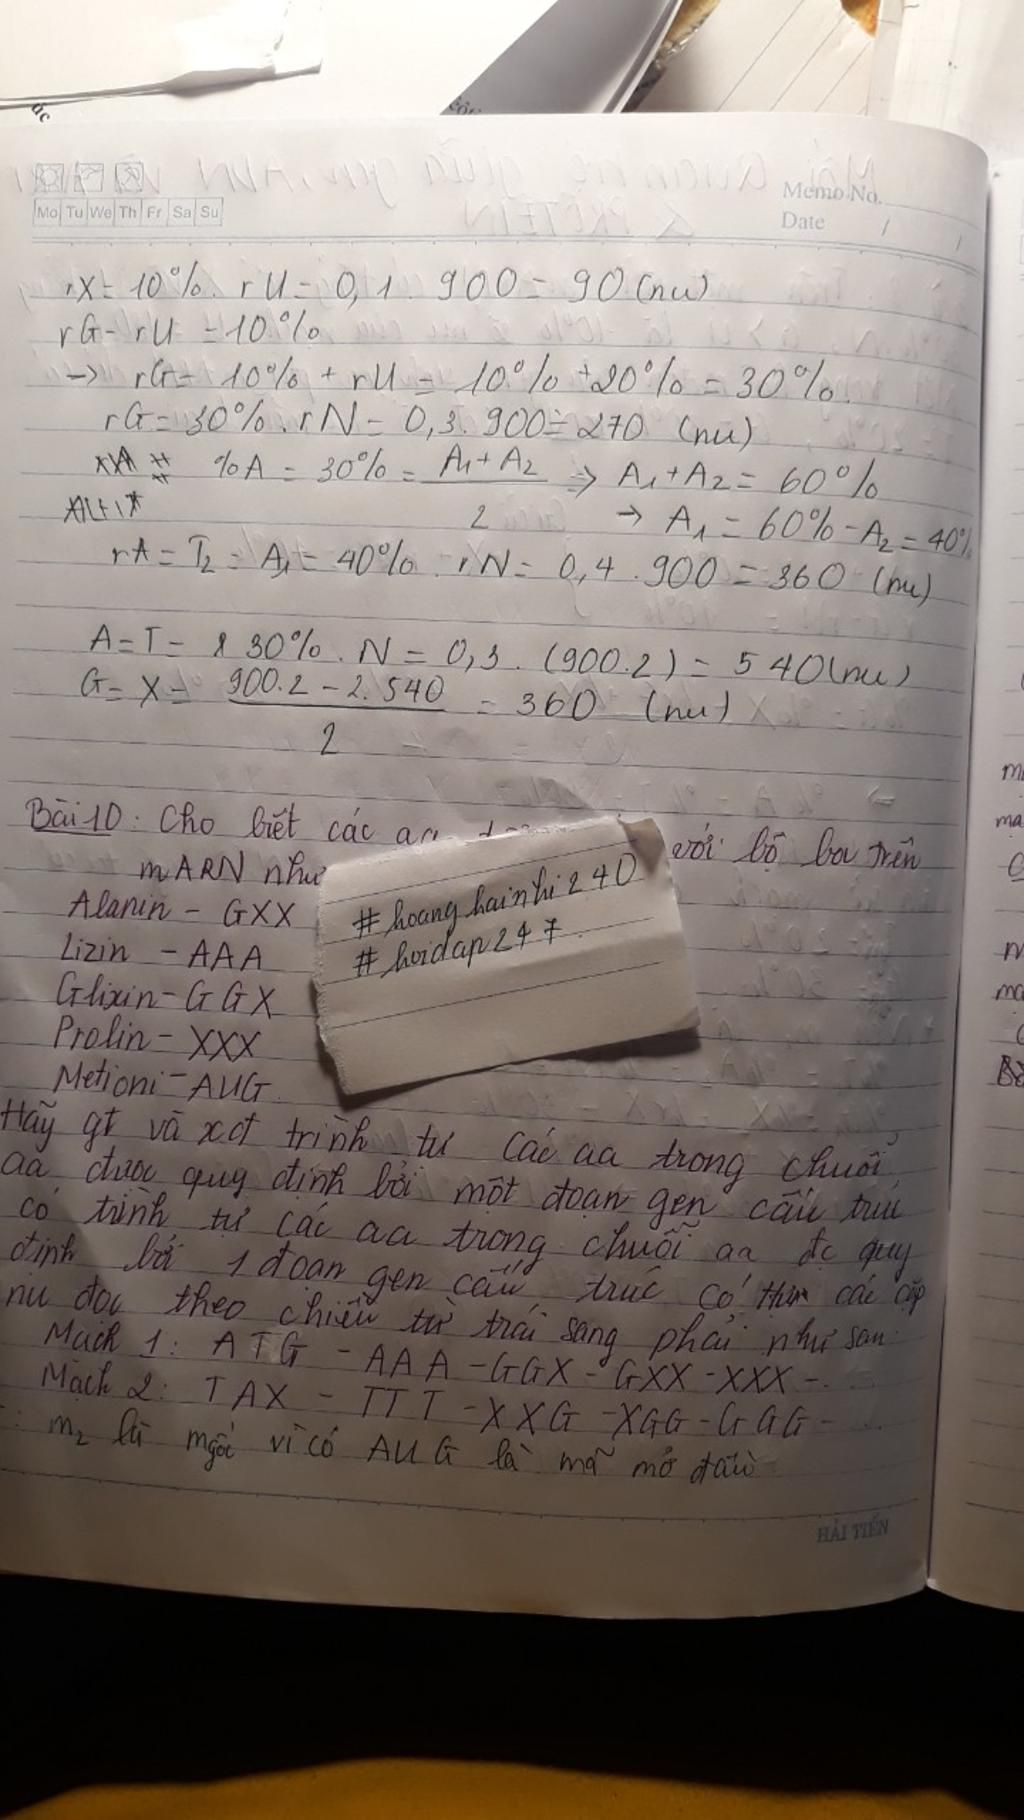 Mo Tu We Th Fr Sa Su
Memo No.
Date / /
rX = 10%. rU = 0,1. 900 = 90 (nu)
rG - rU = 10%
→ rG = 10% + rU = 10% + 20% = 30%.
rG = 30%. rN = 0,3. 900 = 270 (nu)
%A = 30% = A1 + A2 / 2 => A1 + A2 = 60%
→ A1 = 60% - A2 = 40%
rA = T2 = A1 = 40%. rN = 0,4. 900 = 360 (nu)
A = T = 30%. N = 0,3. (900.2) = 540 (nu)
G = X = 900.2 - 2.540 / 2 = 360 (nu)
Bài 10: Cho biết các aa với bộ ba trên
mARN như
Alanin - GXX
Lizin - AAA
Glixin - GGX
Prolin - XXX
Metioni - AUG
# hoanghainhi240
# hoidap247
Hãy gt và xđ trình tự các aa trong chuỗi
aa được quy định bởi một đoạn gen cấu trúc
có trình tự các aa trong chuỗi aa đc quy
định bởi 1 đoạn gen cấu trúc có các cặp
nu đọc theo chiều từ trái sang phải như sau:
Mạch 1: ATG - AAA - GGX - GXX - XXX - ...
Mạch 2: TAX - TTT - XXG - XGG - GGG - ...
m2 là mgốc vì có AUG là mã mở đầu
HẢI TIẾN